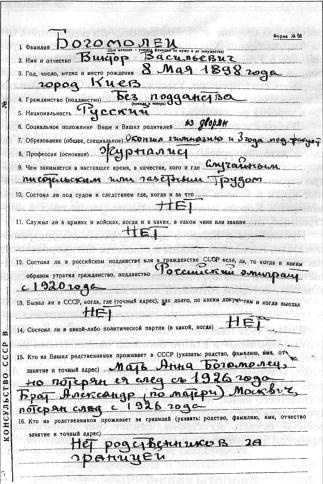 Форма № 86
1 Фамилия Богомолец
2. Имя и отчество Виктор Васильевич
3. Год, число, месяц и место рождения 8 Мая 1898 года
город Киев
4. Гражданство (подданство) Без подданства
5. Национальность Русский
6. Социальное положение Ваше и Ваших родителей из дворян
7. Образование (общее, специальное) Окончил гимназию и 3 года мед. факульт
8. Профессия (основная) Журналист
9. Чем занимается в настоящее время, в качестве, кого и где Случайным
писательским или газетным Трудом
10. Состоял ли под судом и следствием где, когда и за что
НЕТ
11. Служил ли в армиях и войсках, когда и в каких, в каком чине или звании
НЕТ
12. Состоял ли в российском подданстве или в гражданстве СССР если, да, то когда и каким
образом утратил гражданство, подданство Российский эмигрант
с 1920 года
13. Бывал ли в СССР, когда, где (точный адрес), как долго, по каким документам и когда выехал
НЕТ
14. Состоял ли в какой-либо политической партии (в какой, когда) НЕТ
15. Кто из Ваших родственников проживает в СССР (указать: родство, фамилию, имя, от-
чество, занятие и точный адрес) Мать Анна Богомолец,
но потерян ея след съ 1926 года
Брат Александр (по матери) Москвич,
потерян след с 1926 года
16. Кто из родственников проживает за границей (указать: родство, фамилию, имя, отчество
занятие и точный адрес)
Нет родственников за
границей
КОНСУЛЬСТВО СССР В
№